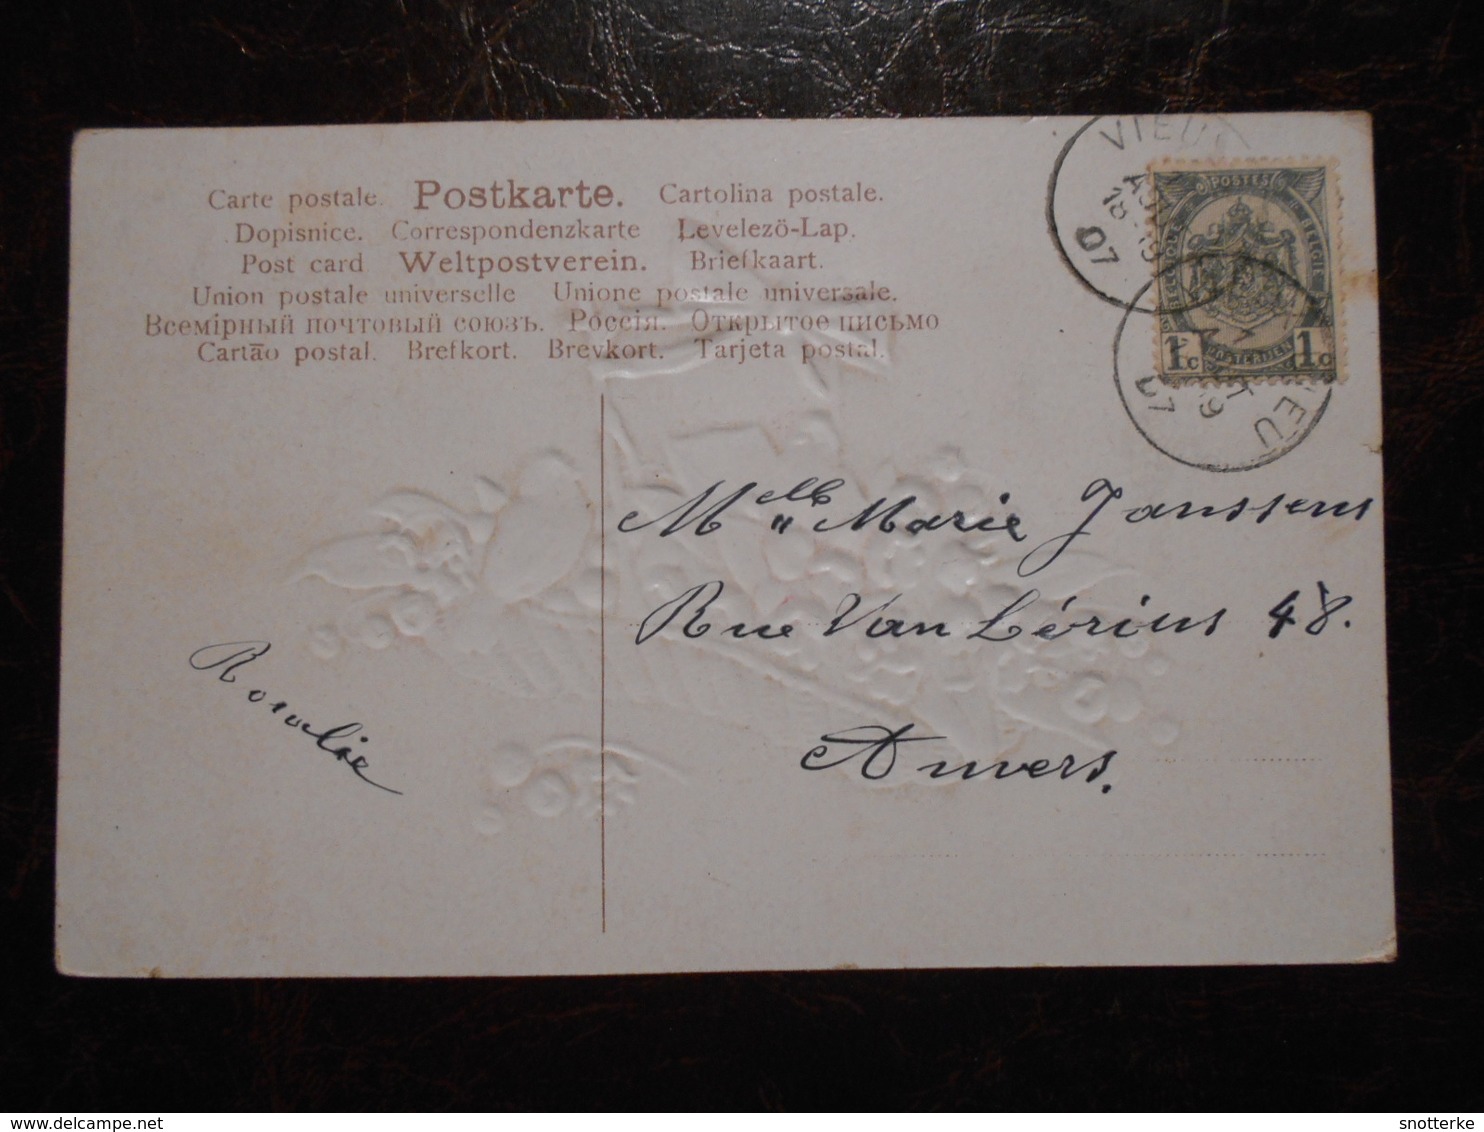 Carte postale. Postkarte. Cartolina postale.
Dopisnice. Correspondenzkarte Levelezö-Lap.
Post card Weltpostverein. Briefkaart.
Union postale universelle Unione postale universale.
Всемірный почтовый союзъ. Россія. Открытое письмо
Cartāo postal. Brefkort. Brevkort. Tarjeta postal.
VIEU
07
POSTES
1c POSTERIJEN 1c
07
IEU
Mlle Marie Janssens
Rue Van Lérius 48.
Anvers.
Rosalie
delcampe.net
snotterke